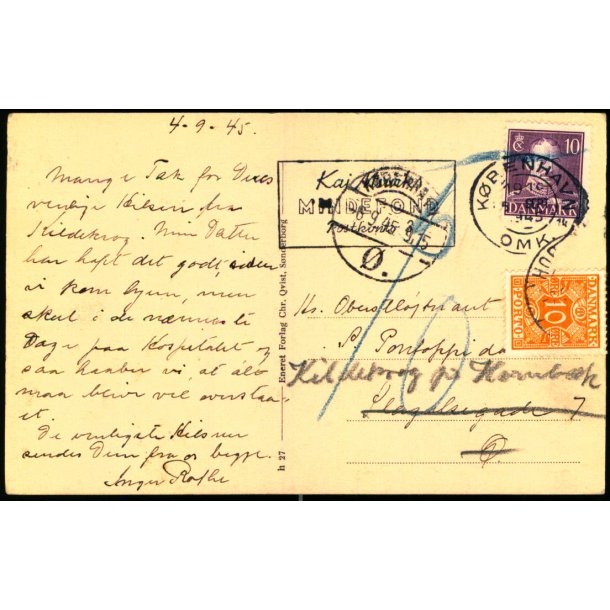 4-9-45.
Mange Tak for Deres
venlige Hilsen fra
Kildekrog. Min Datter
har haft det godt, siden
vi kom hjem, men
skal i de nærmeste
Dage paa Hospitalet og
saa haaber vi, at alt
maa blive vel overstaa-
et.
De venligste Hilsner
sendes Dem fra os begge.
Inger Rothe
h 27 Eneret Forlag Chr. Qvist, Sønderborg
Kaj Munks
MINDEFOND
Postkonto
6.9.45
Ø.
10
DANMARK
KØBENHAVN
OMK.
DANMARK
10
PORTO
10
Hr. Oberstløjtnant
Pontoppidan
Kildekrog pr Hornbæk
Slagelsegade 7
Ø.